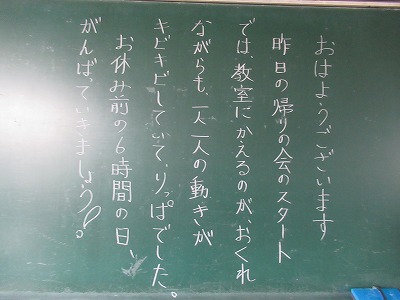 おはようございます
昨日の帰りの会のスタート
では、教室にかえるのが、おくれ
ながらも、一人一人の動きが
キビキビしていて、りっぱでした。
お休み前の6時間の日、
がんばっていきましょう!。